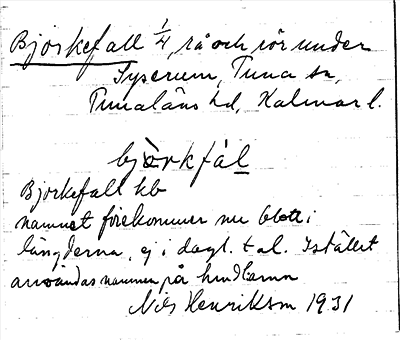 Björkefall 1/4, rå och rör under
Tyserum, Tuna sn,
Tunaläns hd, Kalmar l.
björkfál
Björkefall kb
namnet förekommer nu blott i
längderna, ej i dagl. tal. Istället
användas namnen på hemlamn
Nils Henriksson 1931